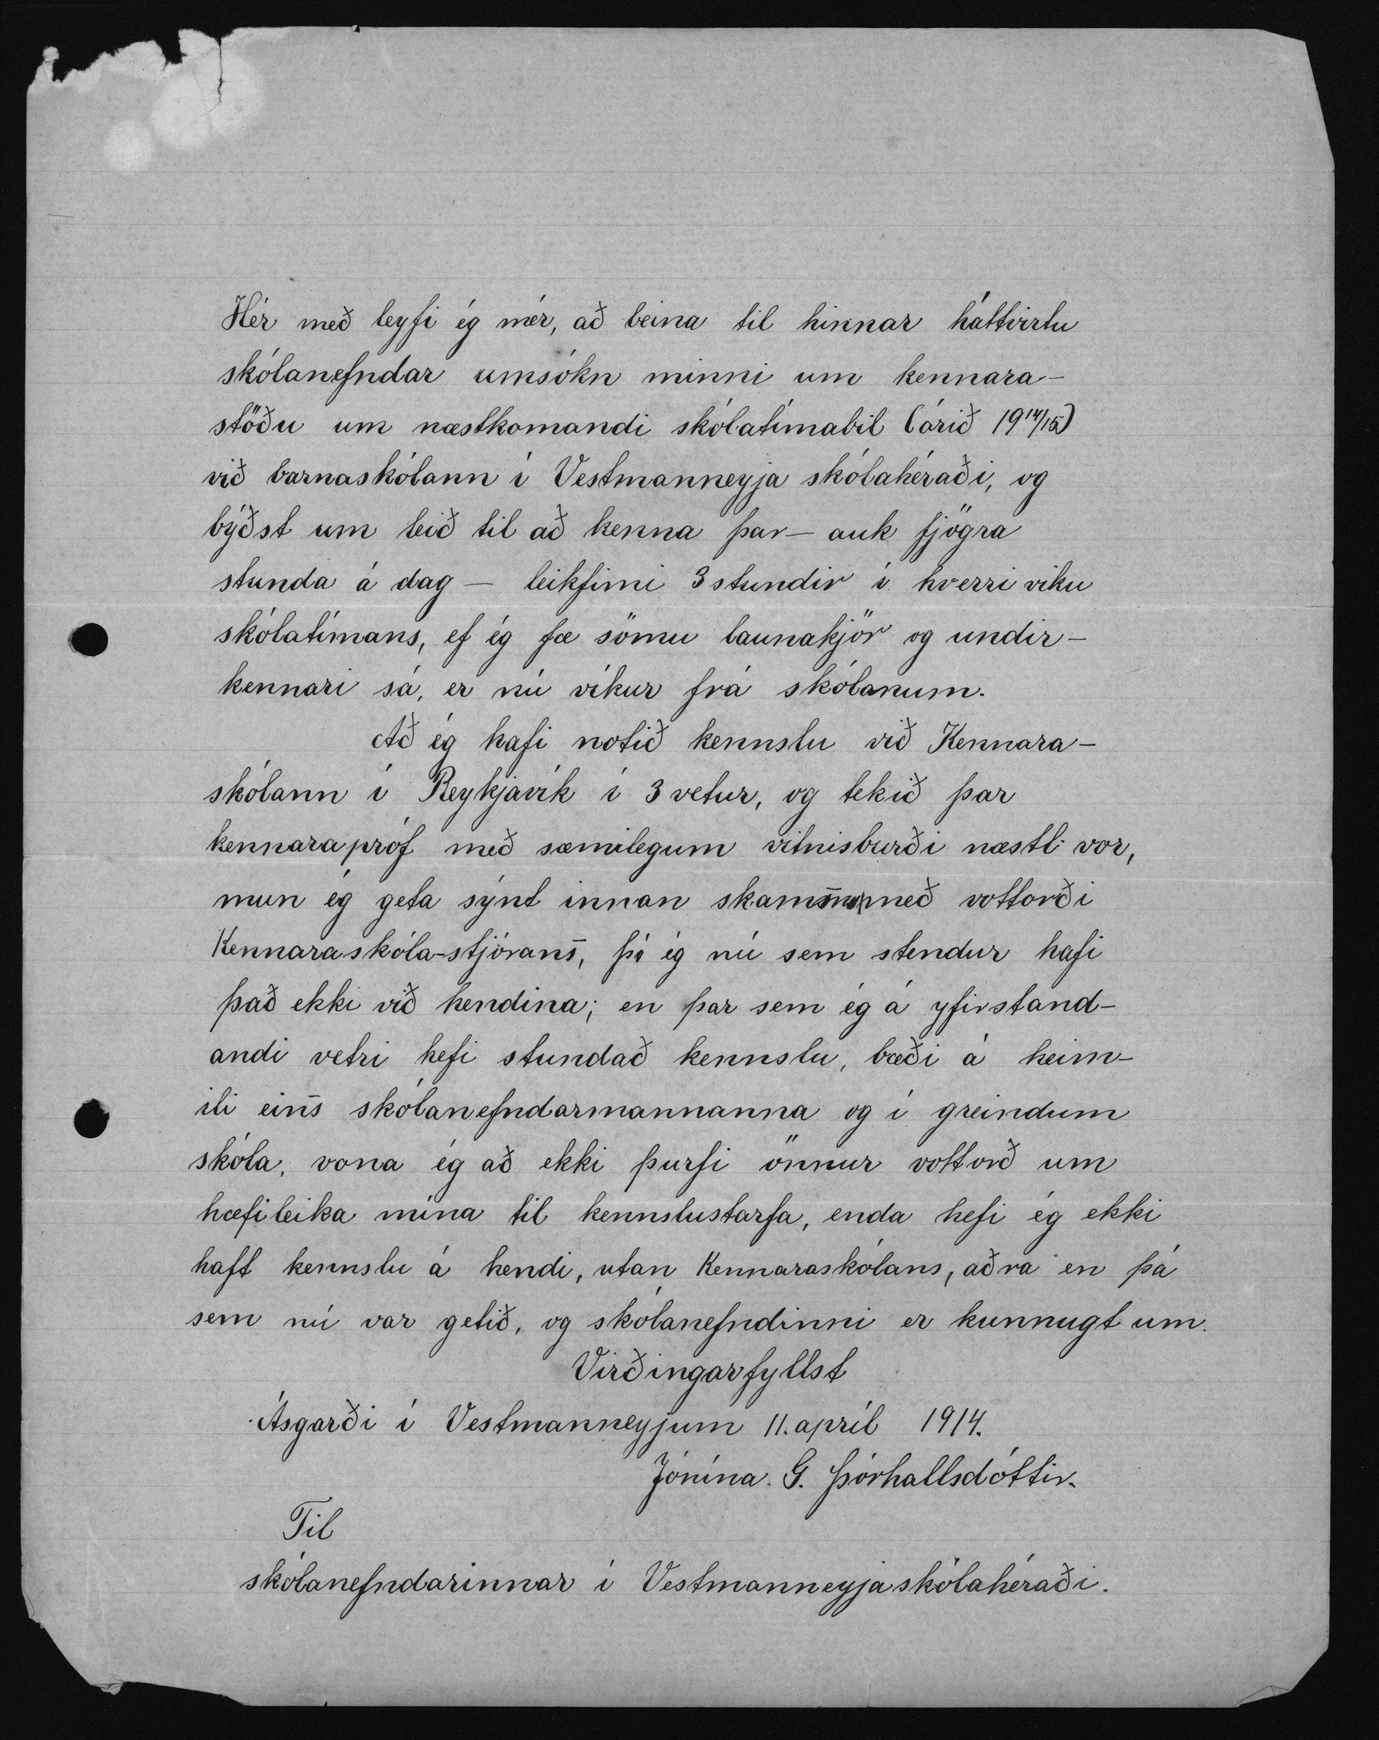 Hér með leyfi ég mér, að beina til hinnar háttvirtu
skólanefndar umsókn minni um kennara-
stöðu um næstkomandi skólatímabil (árið 1914/15)
við barnaskólann í Vestmanneyja skólahéraði, og
býðst um leið til að kenna þar – auk fjögra
stunda á dag – leikfimi 3 stundir í hverri viku
skólatímans, ef ég fæ sömu launakjör og undir-
kennari sá, er nú víkur frá skólanum.
Að ég hafi notið kennslu við Kennara-
skólann í Reykjavík í 3 vetur, og tekið þar
kennarapróf með sæmilegum vitnisburði næstl. vor,
mun ég geta sýnt innan skamms með vottorði
Kennaraskóla-stjórans, þó ég nú sem stendur hafi
það ekki við hendina; en þar sem ég á yfirstand-
andi vetri hefi stundað kennslu, bæði á heim-
ili eins skólanefndarmannanna og í greindum
skóla, vona ég að ekki þurfi önnur vottorð um
hæfileika mína til kennslustarfa, enda hefi ég ekki
haft kennslu á hendi, utan Kennaraskólans, aðra en þá
sem nú var getið, og skólanefndinni er kunnugt um.
Virðingarfyllst
Ásgarði í Vestmanneyjum 11. apríl 1914.
Jónína. G. Þórhallsdóttir.
Til
skólanefndarinnar í Vestmanneyjaskólahéraði.